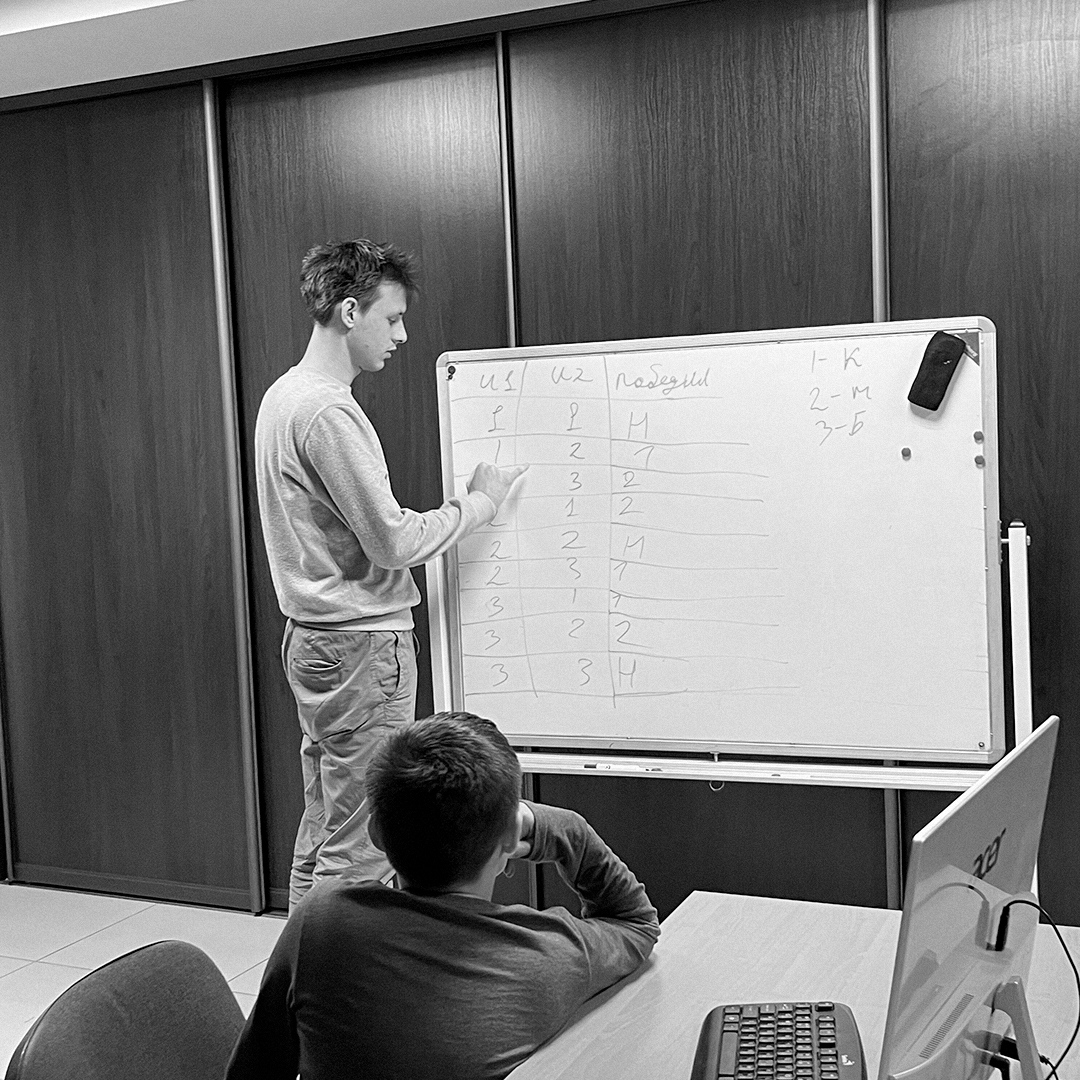 И1 И2 Победил
1 1 Н
1 2 1
3 2
2 1 2
2 2 Н
2 3 1
3 1 1
3 2 2
3 3 Н
1-К
2-М
3-Б
acer